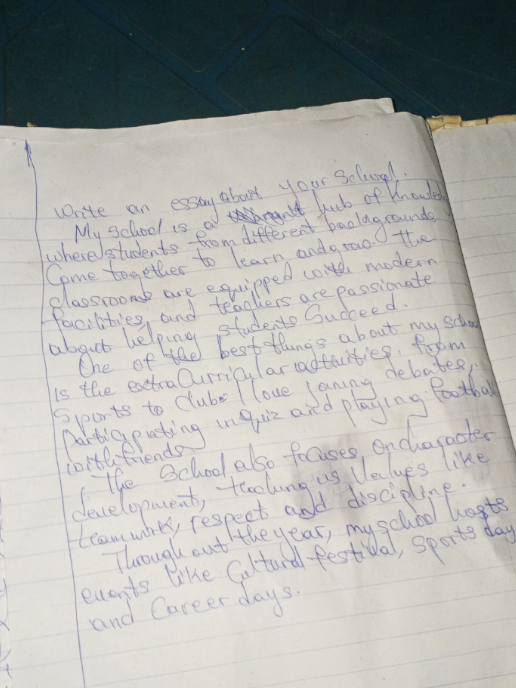 Write an essay about your School.
My School is a hub of knowled
where students from different backgrounds
Come together to learn and grow. The
classrooms are equipped with modern
facilities, and teachers are passionate
about helping students Succeed.
One of the best things about my school
is the extraCurricular activities, from
Sports to Clubs I love joining debates,
participating in quiz and playing football
with friends.
The School also focuses on character
development, teaching us Values like
teamwork, respect and discipline.
Throughout the year, my school hosts
events like Cultural festival, Sports day
and Career days.